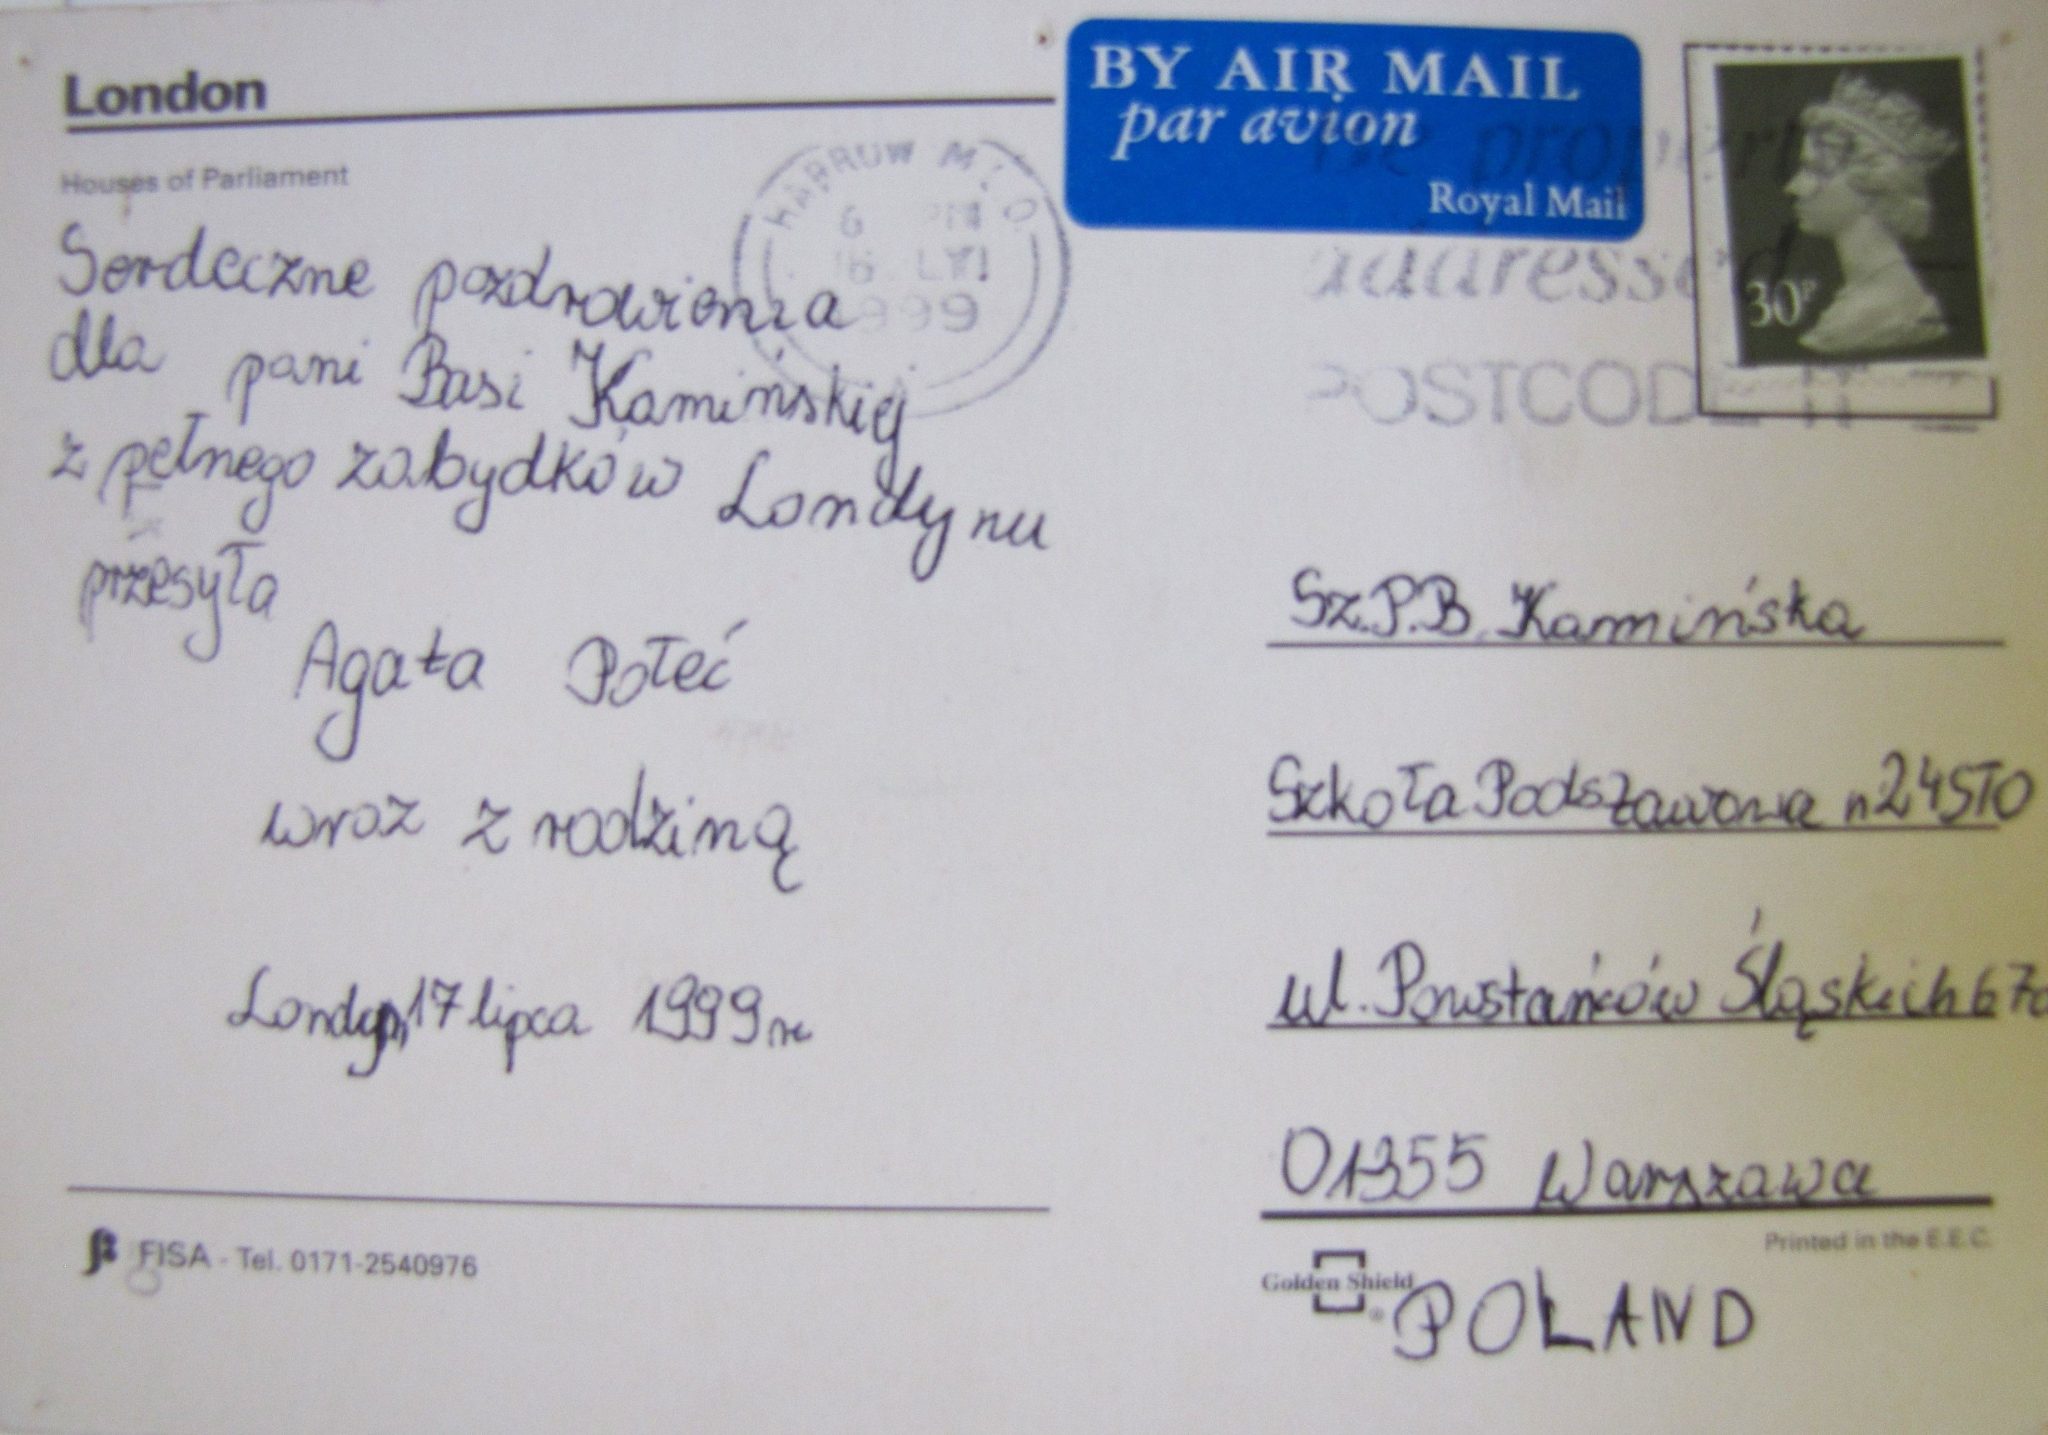 London
Houses of Parliament
Serdeczne pozdrowienia
dla pani Basi Kamińskiej
z pełnego zabydków Londynu
przesyła
Agata Połeć
wraz z rodziną
Londyn, 17 lipca 1999 r
FISA - Tel. 0171-2540976
BY AIR MAIL
par avion
Royal Mail
HARROW
6 PM
1999
properly
addressed
POSTCODE IT
30P
Sz.P.B. Kamińska
Szkoła Podstawowa n 24STO
ul. Powstańców Śląskich 67a
01355 Warszawa
Printed in the E.E.C.
Golden Shield
POLAND